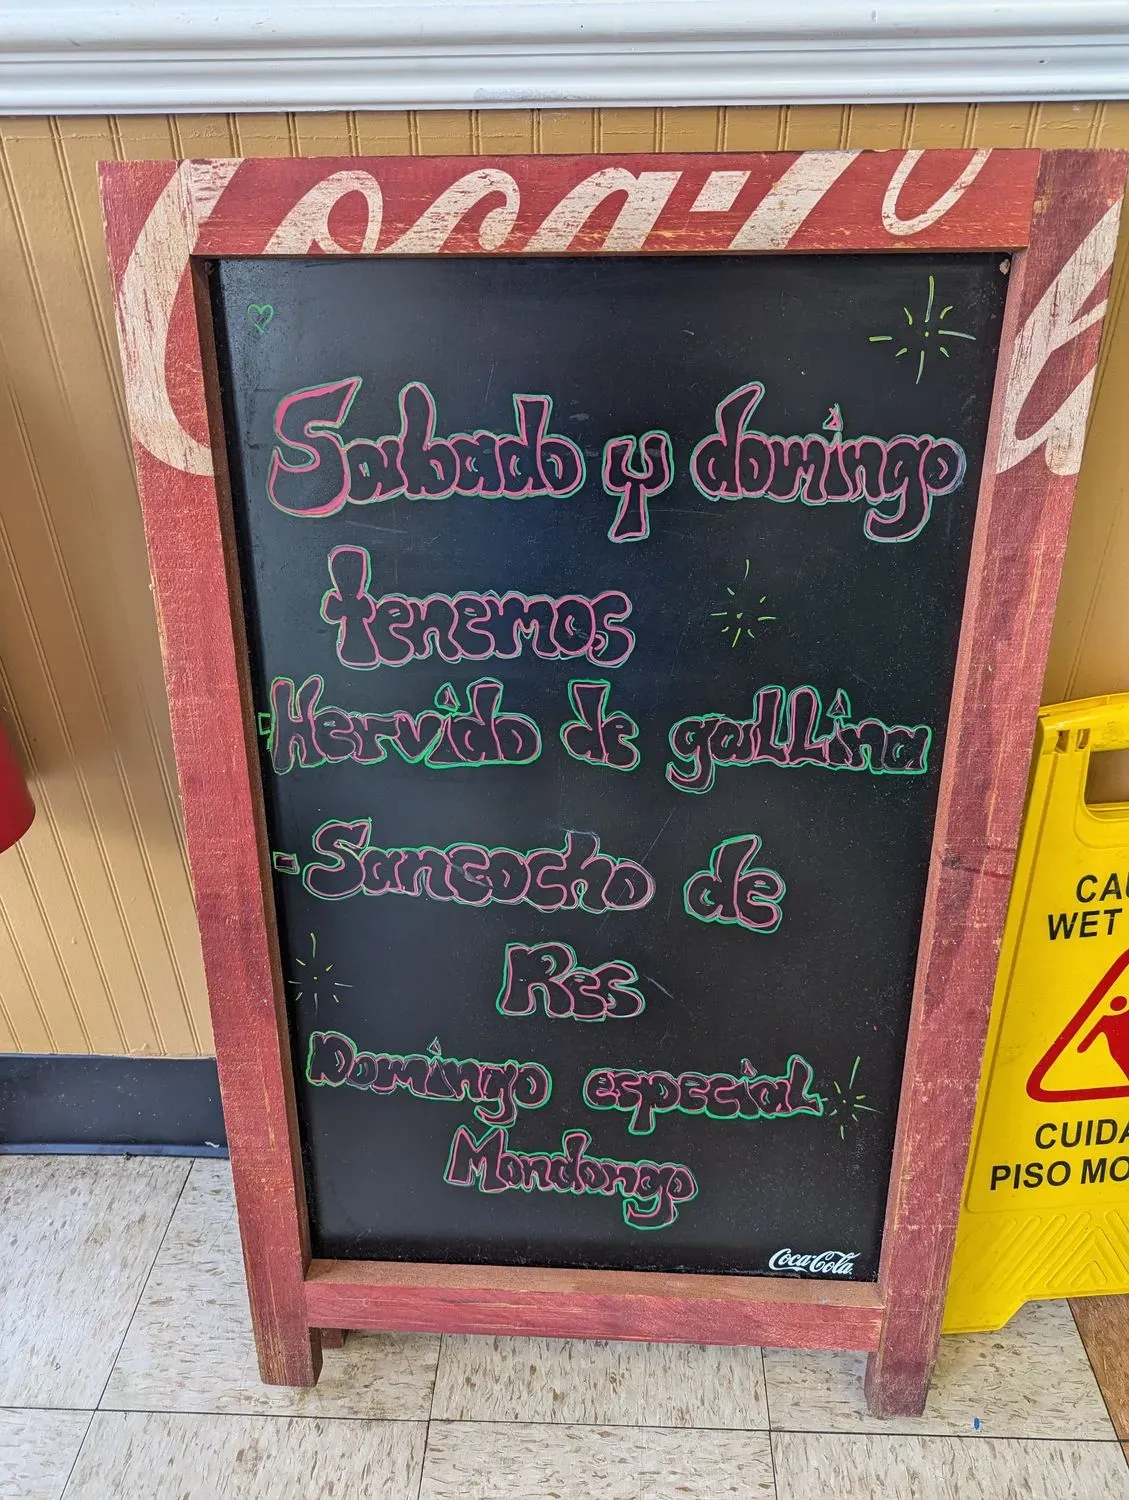 Coca-Co
Sabado y domingo
tenemos
-Hervido de gallina
-Sancocho de
Res
Domingo especial
Mondongo
Coca-Cola
CAU
WET
CUIDA
PISO MO